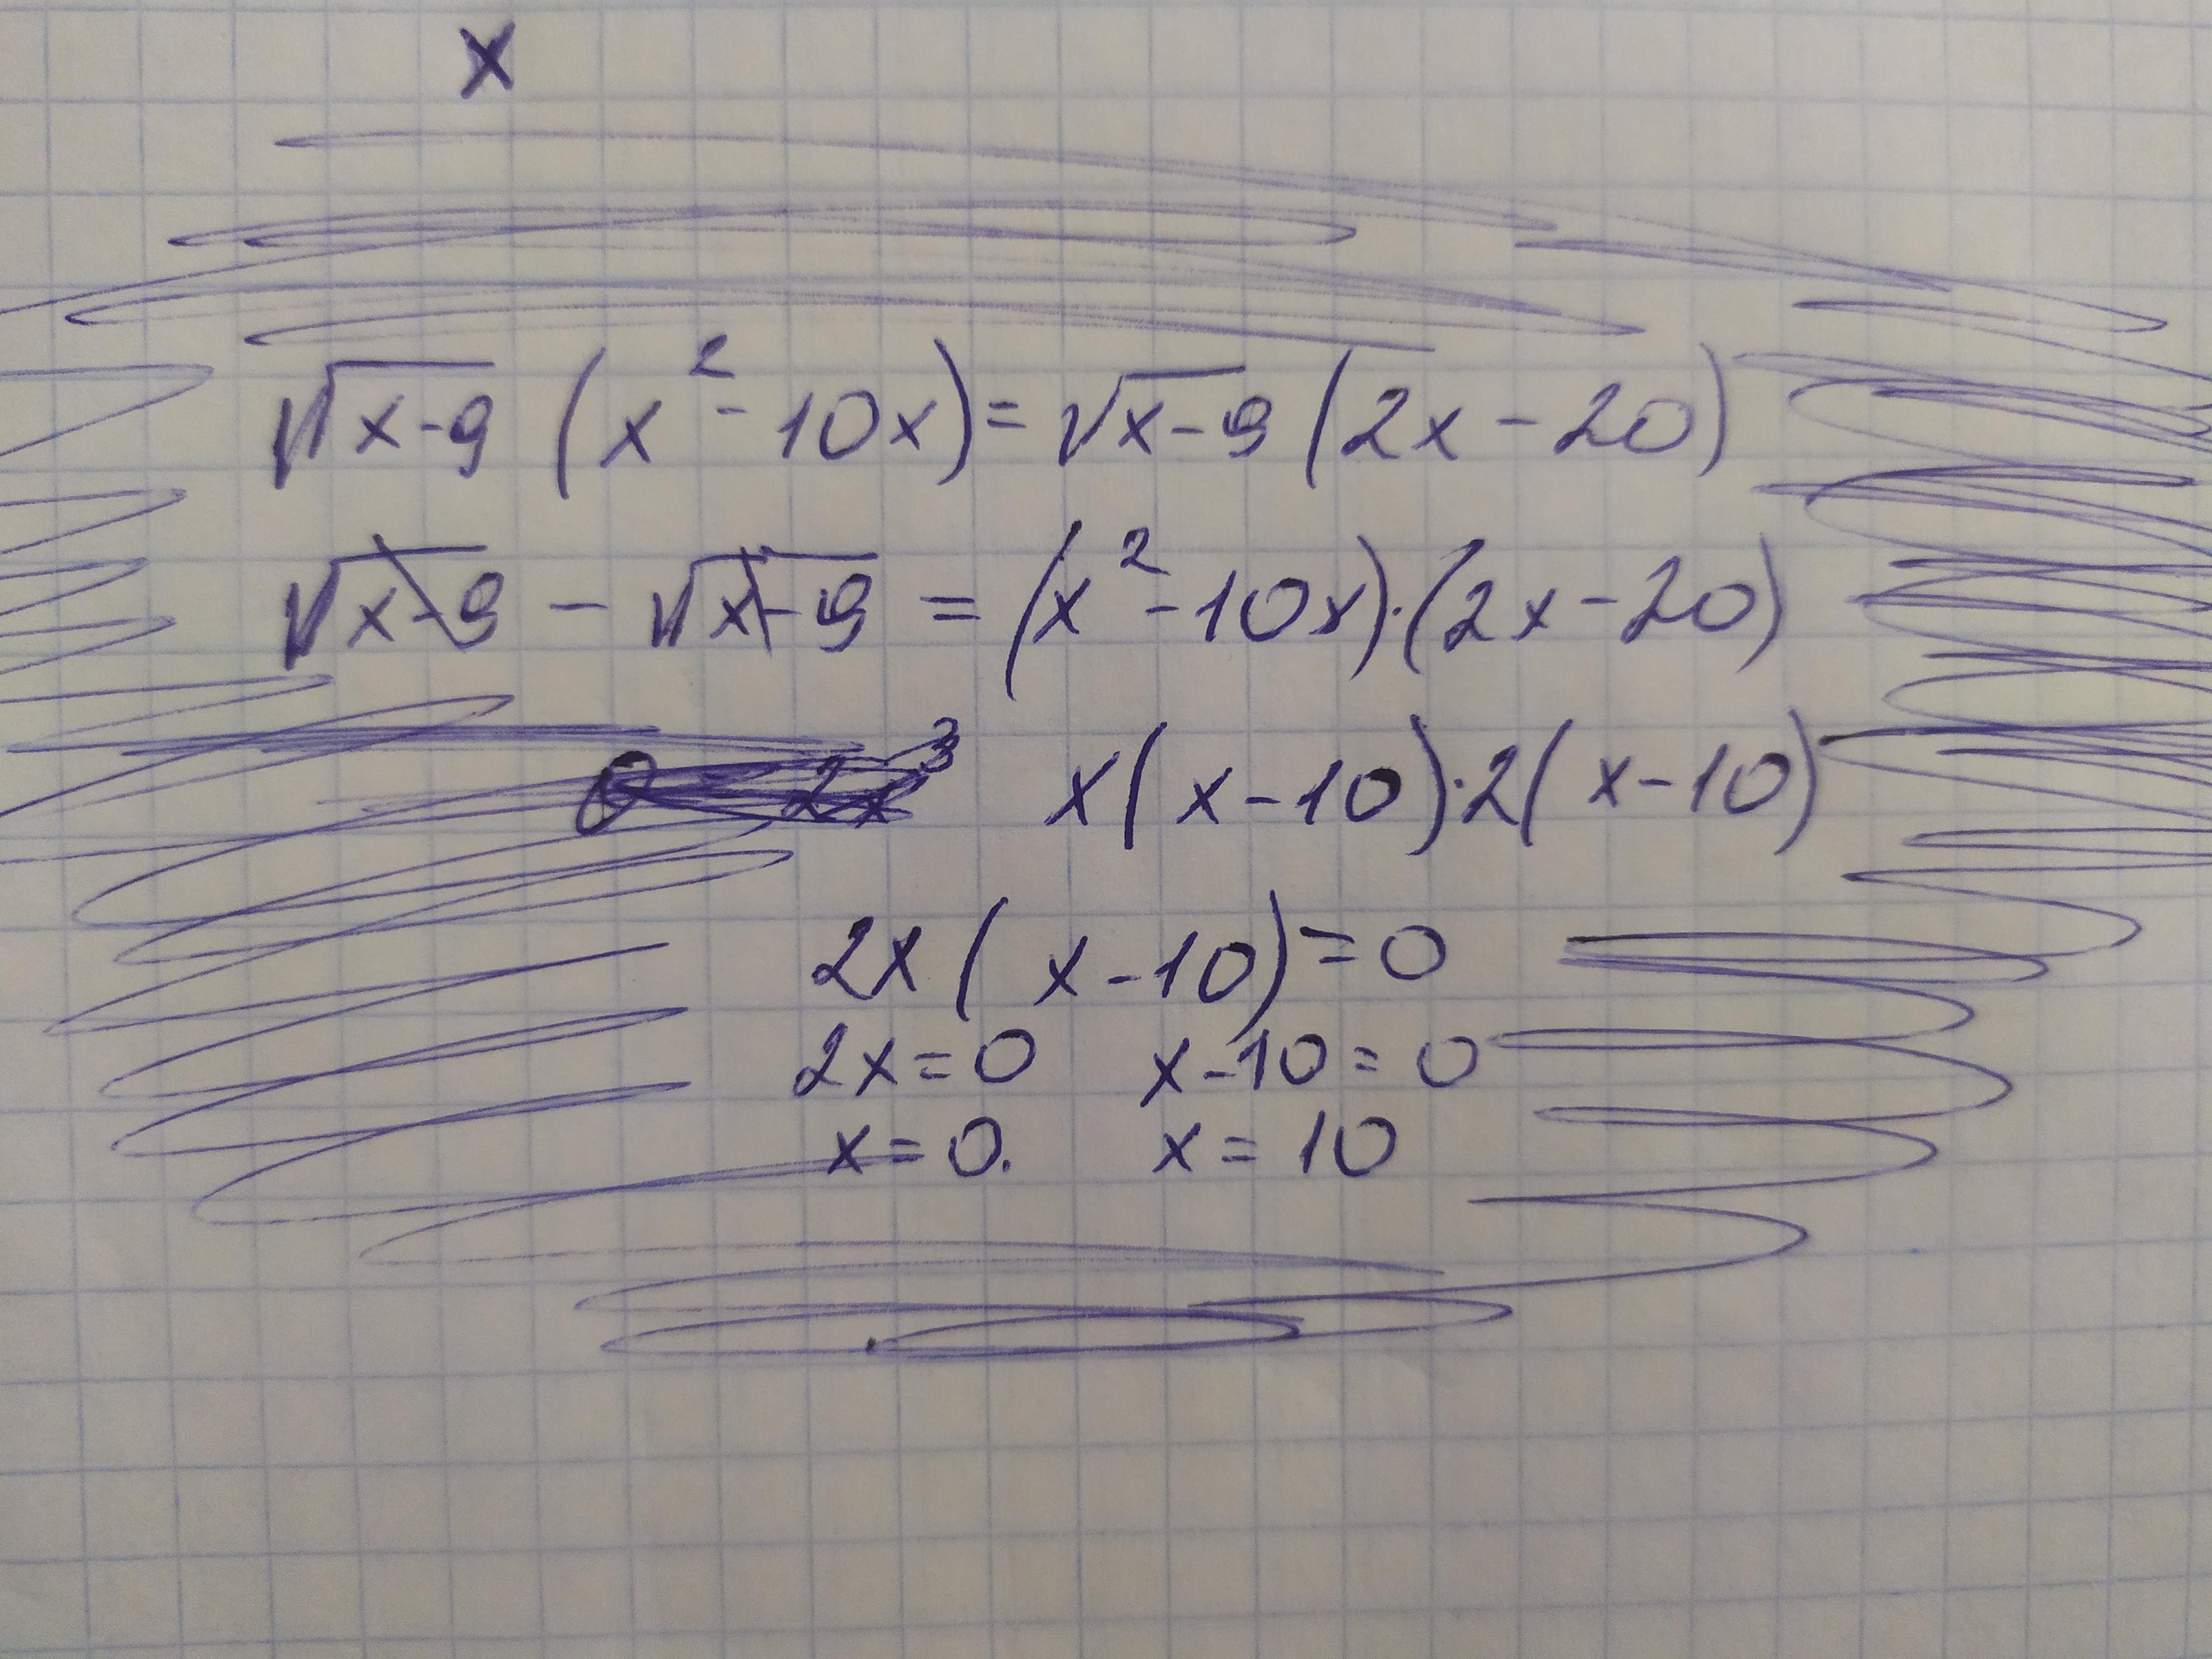 x
√x-9 (x²-10x)=√x-9 (2x-20)
√x-9 - √x-9 = (x²-10x)·(2x-20)
0 2x³ x(x-10)·2(x-10)
2x(x-10)=0
2x=0 x-10=0
x=0. x=10